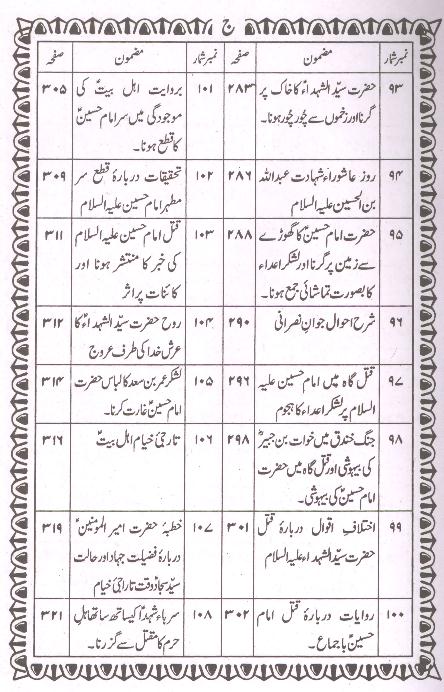 ج
نمبرشمار مضمون صفحہ نمبرشمار مضمون صفحہ
۹۳ حضرت سیّد الشہداءؑ کا خاک پر ۲۸۳
گرنا اور زخموں سے چُور چُور ہونا۔
۹۴ روز عاشوراء شہادت عبداللہ ۲۸۶
بن الحسین علیہ السلام
۹۵ حضرت امام حسینؑ کا گھوڑے ۲۸۸
سے زمین پر گرنا اور لشکر اعداء
کا بصورت تماشائی جمع ہونا۔
۹۶ شرح احوال جوانِ نصرانی ۲۹۰
۹۷ قتل گاہ میں امام حسین علیہ ۲۹۶
السلام پر لشکر اعدا کا ہجوم
۹۸ جنگ خندق میں خوات بن جبیرؓ ۲۹۸
کی بیہوشی اور قتل گاہ میں حضرت
امام حسینؑ کی بیہوشی۔
۹۹ اختلافِ اقوال دربارۂ قتل ۳۰۱
حضرت سیّد الشہداء علیہ السلام
۱۰۰ روایات دربارۂ قتل امام ۳۰۲
حسینؑ با جماع۔
۱۰۱ بروایت اہل بیتؑ کی ۳۰۵
موجودگی میں سر امام حسینؑ
کا قطع ہونا۔
۱۰۲ تحقیقات دربارۂ قطع سر ۳۰۹
مطہر امام حسین علیہ السلام
۱۰۳ قتل امام حسین علیہ السلام ۳۱۱
کی خبر کا منتشر ہونا اور
کائنات پر اثر
۱۰۴ روح حضرت سیّد الشہداءؑ کا ۳۱۲
عرش خدا کی طرف عروج
۱۰۵ لشکر عمر بن سعد کا لباس حضرت ۳۱۴
امام حسینؑ غارت کرنا۔
۱۰۶ تاراجئ خیام اہل بیتؑ ۳۱۶
۱۰۷ خطبۂ حضرت امیر المومنینؑ ۳۱۹
دربارۂ فضیلت جہاد اور حالت
سیّد سجادؑ وقت تاراجئ خیام
۱۰۸ سرہاء شہداؑ کیساتھ ساتھ اہلِ ۳۲۱
حرم کا مقتل سے گزرنا۔